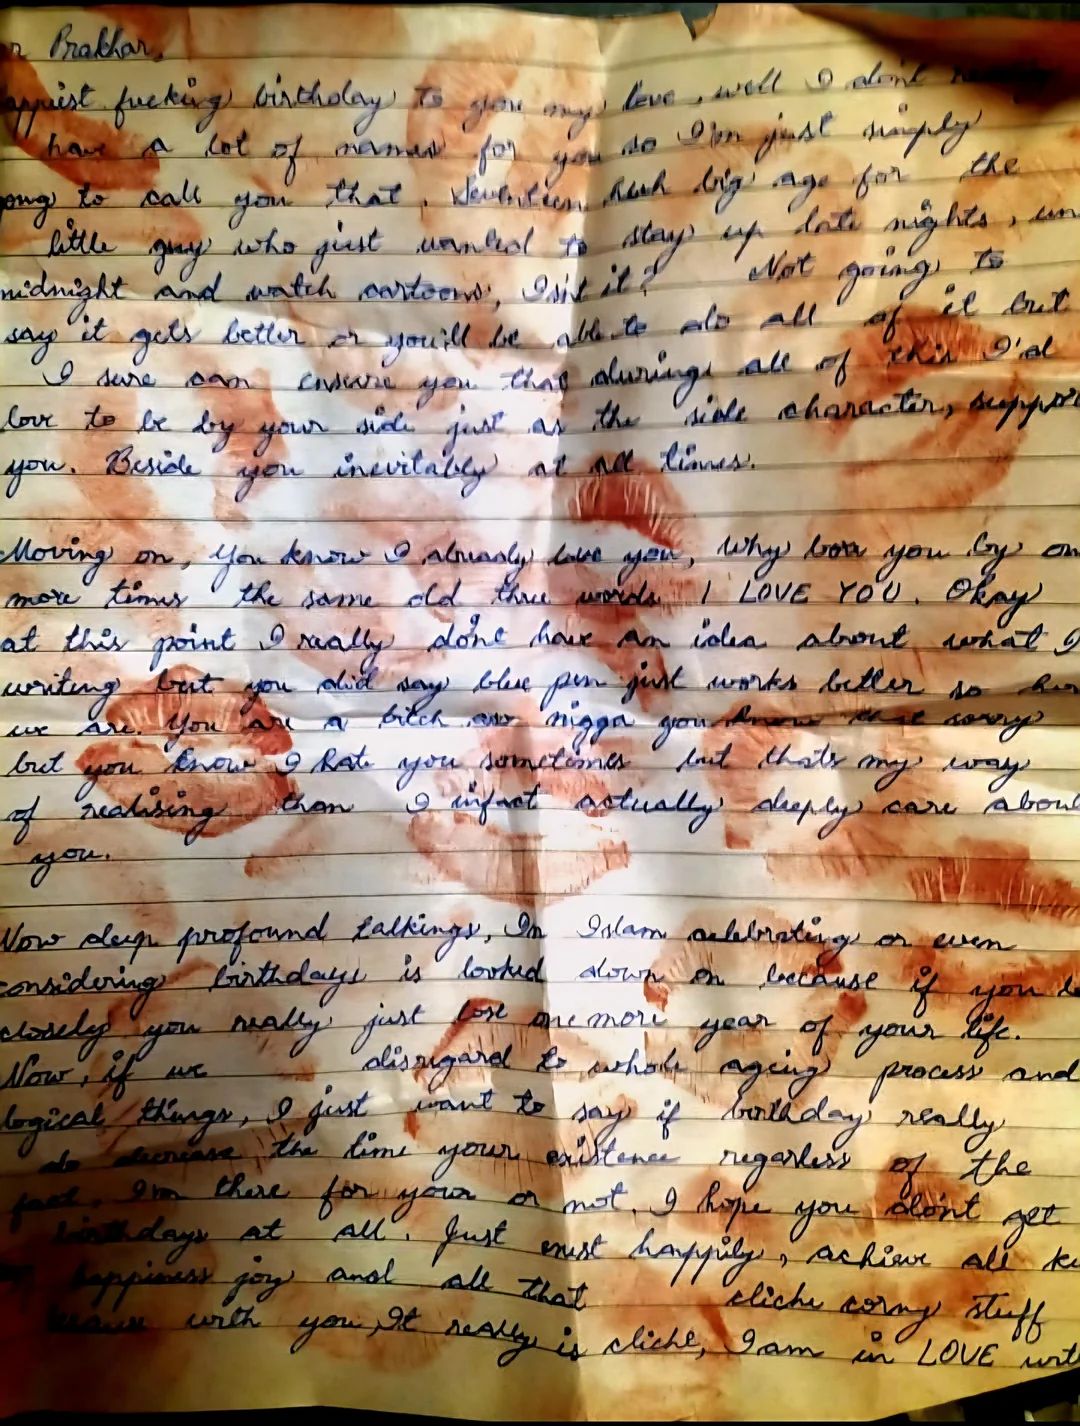 r Prakhar,
appiest fucking birthday to you my love, well I don't really
have a lot of names for you so I'm just simply
oing to call you that. Seventeen huh big age for the
little guy who just wanted to stay up late nights, un
midnight and watch cartoons, Isn't it? Not going to
say it gets better or you'll be able to do all of it but
I sure can ensure you that during all of this I'd
love to be by your side just as the side character, support
you. Beside you inevitably at all times.
Moving on, You know I already love you, why bore you by on
more times the same old three words I LOVE YOU. Okay
at this point I really don't have an idea about what I
writing but you did say blue pen just works better so her
we are. You are a bitch ass nigga you know that sorry
but you know I hate you sometimes but thats my way
of realising than I infact actually deeply care about
you.
Now deep profound talkings, In Islam celebrating or even
considering birthdays is looked down on because if you lo
closely you really just lose one more year of your life.
Now, if we disregard to whole ageing process and
logical things, I just want to say if birthday really
do decrease the time your existence regarless of the
fact, I'm there for your or not. I hope you don't get
birthdays at all. Just exist happily, achieve all ki
happiness joy and all that cliche corny stuff
because with you, It really is cliche, I am in LOVE with